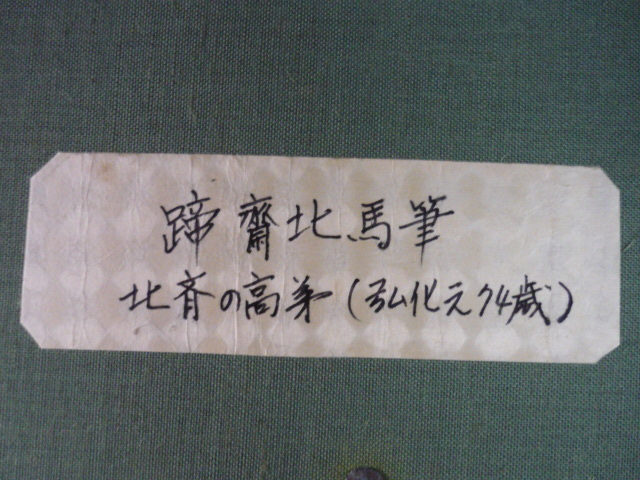 蹄齋北馬筆
北斉の高弟(弘化元74歳)